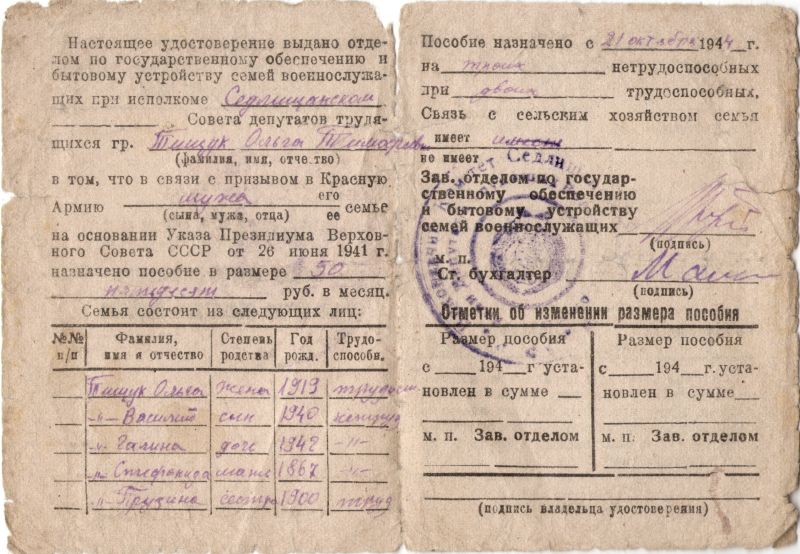 Настоящее удостоверение выдано отде-
лом по государственному обеспечению и
бытовому устройству семей военнослужа-
щих при исполкоме Седлищанском
Совета депутатов трудя-
щихся гр. Тищук Ольга
(фамилия, имя, отчество)
в том, что в связи с призывом в Красную
Армию мужа его семье
(сына, мужа, отца) ее
на основании Указа Президиума Верхов-
ного Совета СССР от 26 июня 1941 г.
назначено пособие в размере 50
пятьдесят руб. в месяц.
Семья состоит из следующих лиц:
№№ п/п Фамилия, имя и отчество Степень родства Год рожд. Трудо-способн.
Тищук Ольга жена 1919
-"- Василий сын 1940
-"- Галина доч 1942 -"-
-"- 1867 -"-
-"- сестра 1900 труд
Пособие назначено с 21 октября 1944 г.
на троих нетрудоспособных
при двоих трудоспособных.
Связь с сельским хозяйством семья
имеет
не имеет
Зав. отделом по государ-
ственному обеспечению
и бытовому устройству
семей военнослужащих
(подпись)
м. п.
Ст. бухгалтер
(подпись)
Отметки об изменении размера пособия
Размер пособия
с 194 г. уста-
новлен в сумме
м. п. Зав. отделом
Размер пособия
с 194 г. уста-
новлен в сумме
м. п. Зав. отделом
(подпись владельца удостоверения)